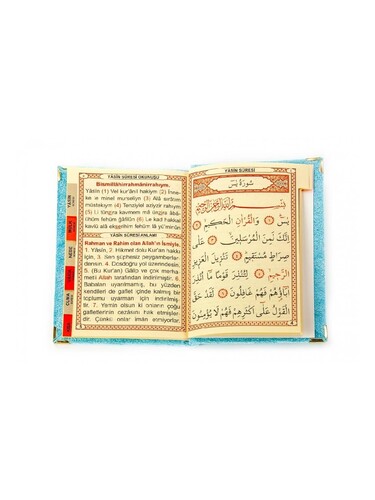 YÂSİN SÛRESİ OKUNUŞU
Bismillâhirrahmânirrahıym.
Yâsîn (1) Vel kur'ânil hakiym (2) İnne-
ke le minel murseliyn (3) Alâ sırâtım
müstekıym (4) Tenziylel aziyzir rahıym
(5) Li tünzira kavmem mâ ünzira âbâ-
ühüm fehüm ğâfilûn (6) Le kad hakkal
kavlü alâ ekserihim fehüm lâ yü'minûn
YÂSİN SÛRESİ ANLAMI
Rahman ve Rahim olan Allah'ın İsmiyle,
1. Yâsin, 2. Hikmet dolu Kur'an hakkı
için, 3. Sen şüphesiz peygamberden-
sin. 4. Dosdoğru yol üzerindesin.
5. (Bu Kur'an) Gâlip ve çok merha-
meti Allah tarafından indirilmiştir. 6.
Babaları uyarılmamış, bu yüzden
kendileri de gaflet içinde kalmış bir
toplumu uyarman için indirilmiş-
tir. 7. Yemin olsun ki onların çoğu
gafletlerinin cezasını hak etmişler-
dir. Çünkü onlar iman etmiyorlar.
YÂSİN SÛRESİ
سُورَةُ يٰسٓ
بِسْمِ اللّٰهِ الرَّحْمٰنِ الرَّحِيمِ
يٰسٓ ﴿١﴾ وَالْقُرْاٰنِ الْحَكِيمِ ﴿٢﴾
اِنَّكَ لَمِنَ الْمُرْسَلِينَ ﴿٣﴾ عَلٰى
صِرَاطٍ مُسْتَقِيمٍ ﴿٤﴾ تَنْزِيلَ الْعَزِيزِ
الرَّحِيمِ ﴿٥﴾ لِتُنْذِرَ قَوْمًا مَٓا اُنْذِرَ
اٰبَٓاؤُ۬هُمْ فَهُمْ غَافِلُونَ ﴿٦﴾ لَقَدْ حَقَّ
الْقَوْلُ عَلٰٓى اَكْثَرِهِمْ فَهُمْ لَا يُؤْمِنُونَ